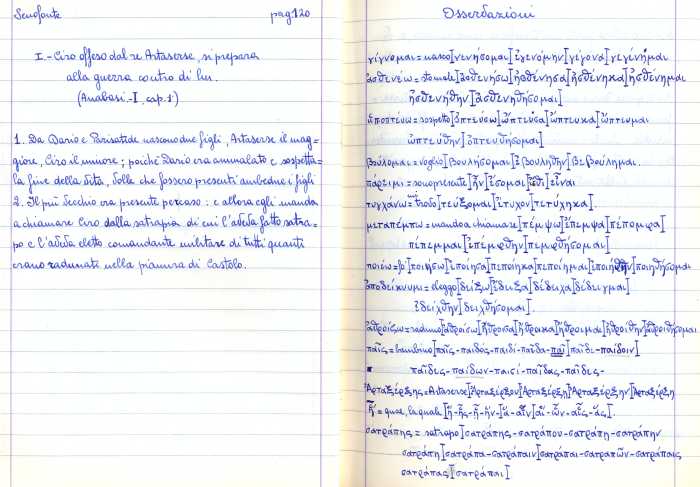 Senofonte pag. 120
I - Ciro offeso dal re Artaserse, si prepara
alla guerra contro di lui.
(Anabasi - I, cap. 1)
1. Da Dario e Parisatide nascono due figli, Artaserse il mag=
giore, Ciro il minore; poiché Dario era ammalato e sospetta=
la fine della vita, volle che fossero presenti ambedue i figli
2. Il più vecchio era presente per caso: e allora egli manda
a chiamare Ciro dalla satrapia di cui l'aveva fatto satra=
po e l'aveva eletto comandante militare di tutti quanti
erano radunati nella pianura di Castolo.
Osservazioni
γίγνομαι = nasco [γενήσομαι] [ἐγενόμην] [γέγονα] [γεγένημαι
ἀσθενέω = sto male [ἀσθενήσω] [ἠσθένησα] [ἠσθένηκα] [ἠσθένημαι
ἠσθενήθην [ἀσθενηθήσομαι]
ὑποπτεύω = sospetto [ὑπτεύσω] [ὥπτευσα] [ὥπτευκα] [ὥπτευμαι
ὠπτεύθην [ὑπτευθήσομαι]
βούλομαι = voglio [βουλήσομαι] [ἐβουλήθην] [βεβούλημαι.
πάρειμι = sono presente [ἦν] [ἔσομαι] [ἴσθι] [εἶναι
τυγχάνω = trovo [τεύξομαι] [ἔτυχον] [τετύχηκα]
μεταπέμπω = mando a chiamare [πέμψω] [ἔπεμψα] [πέπομφα]
πέπεμμαι [ἐπέμφθην] [πεμφθήσομαι]
ποιέω = fo [ποιήσω] [ἐποίησα] [πεποίηκα] [πεποίημαι] [ἐποιήθην] [ποιηθήσομαι
ἀποδείκνυμι = eleggo [δείξω] [ἔδειξα] [δέδειχα] [δέδειγμαι]
ἐδείχθην] [δειχθήσομαι].
ἀθροίζω = raduno [ἀθροίσω] [ἤθροισα] [ἤθροικα] [ἤθροιμαι] [ἠθροίθην] [ἀθροιθήσομαι
παῖς = bambino [παῖς - παιδός - παιδί - παῖδα - παῖ] [παῖδε - παίδοιν]
παῖδες - παίδων - παισί - παῖδας - παῖδες -
Ἀρταξέρξης = Artaserse [Ἀρταξέρξου] [Ἀρταξέρξῃ] [Ἀρταξέρξην] [Ἀρταξέρξη
ἥ = quae, la quale [ἥ - ἧς - ᾗ - ἥν] [ἅ - αἷν] [αἵ - ὧν - αἷς - ἅς].
σατράπης = satrapo [σατράπης - σατράπου - σατράπῃ - σατράπην
σατράπη] [σατράπα - σατράπαιν] [σατράπαι - σατραπῶν - σατράπαις
σατράπας] [σατράπαι]